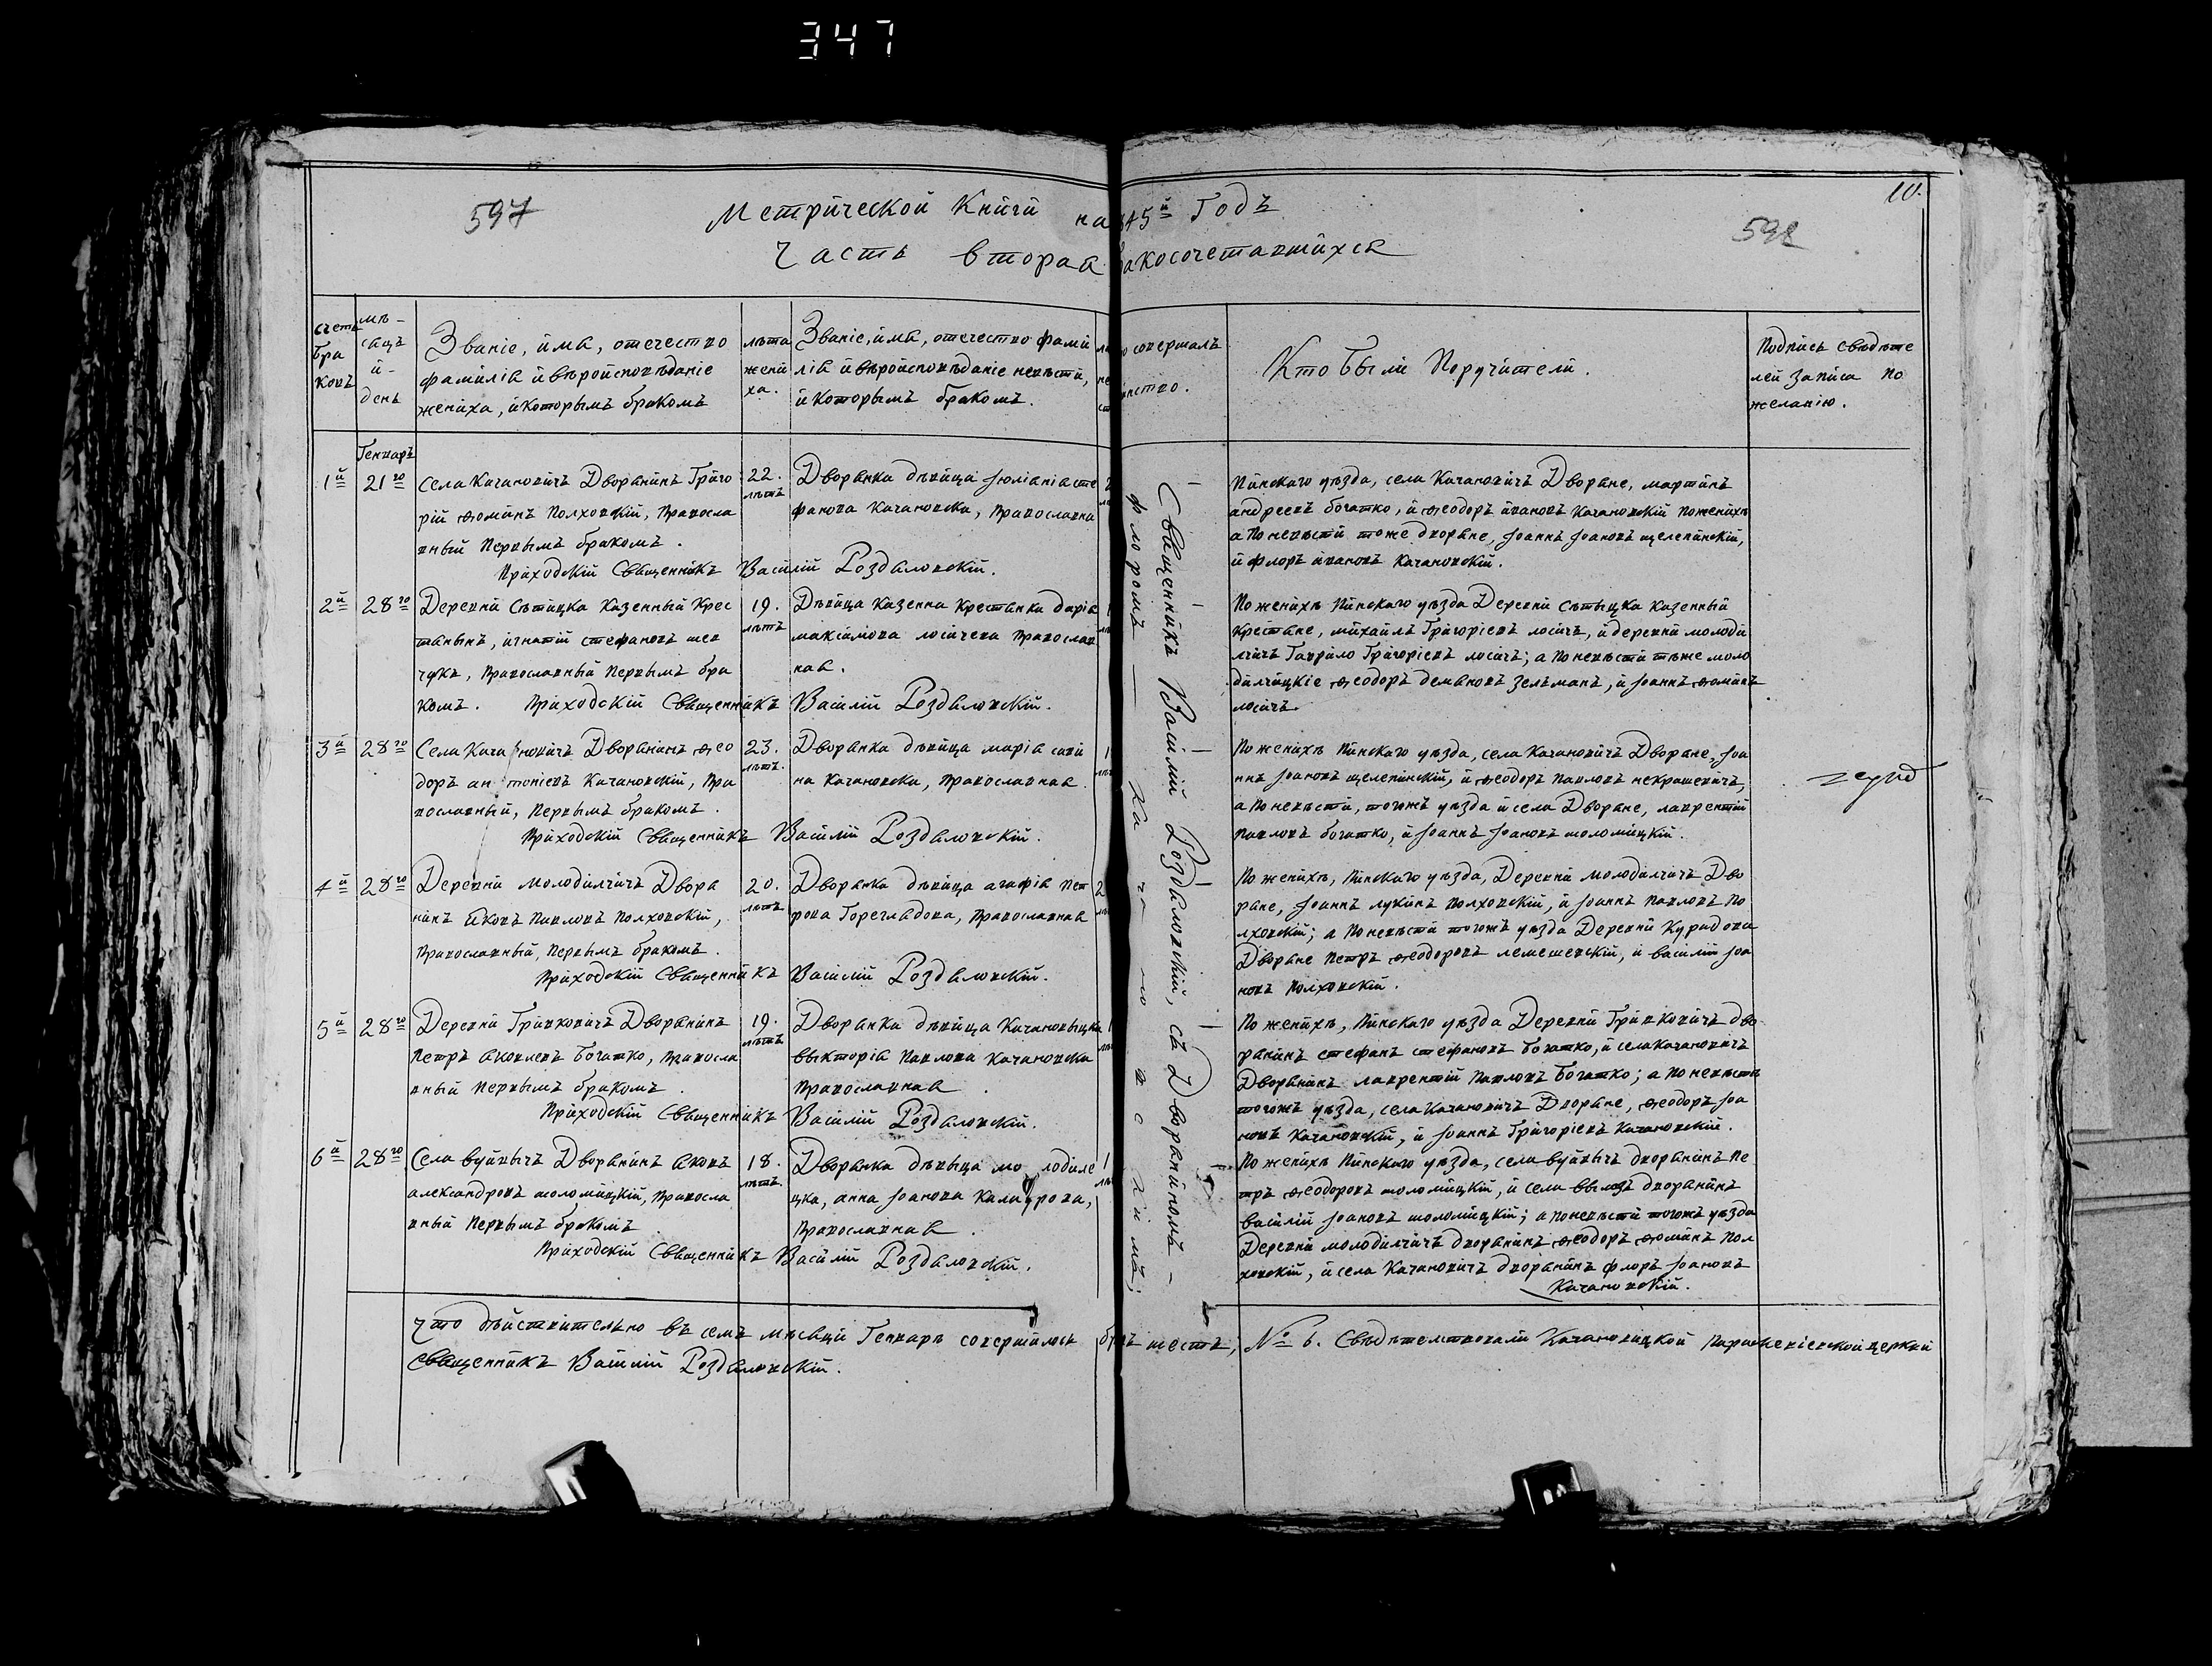 347
597
Метрической Книги на 845й Годъ
10.
598
Часть вторая акосочетавшихся
счетъ бра ковъ
мѣ- сяцъ и- день
Званіе, имя, отечество
фамилія и вѣроисповѣданіе
жениха, и которымъ бракомъ
лѣта
жени
ха.
Званіе, имя, отечество фами
лія и вѣроисповѣданіе невѣсти,
и которымъ бракомъ.
о совершалъ
инство.
Кто были Поручители.
Подпись свѣдѣте
лей записи по
желанію.
Генваръ
1й 21го
Села Качановичъ Дворянинъ Григо
рій Ѳоминъ Полховскій, Правосла
вный Первымъ бракомъ.
22.
лѣтъ
Дворянка дѣвица Юліанія Сте
фанова Качановска, Православна
Приходскій Священникъ Василій Роздяловскій.
Пинскаго уѣзда, села Качановичъ Дворяне, мартинъ
андреевъ богатко, и Ѳеодоръ ивановъ Качановскій по женихѣ
а по невѣсти тоже дворяне, Іоаннъ Іоановъ щелепинскій,
и флоръ ивановъ Качановскій.
2й 28го
Деревни Сѣтицка Казенный Крес
тянынъ, игнатій стефановъ шев
чукъ, Православный Первымъ бра
комъ. Приходскій Священникъ Василій Роздяловскій.
19.
лѣтъ
Дѣвица Казенна Крестянка дарія
максимова лосичева Православ
ная.
По женихѣ Пинскаго уѣзда Деревни Сѣтыцка Казенный
Крестяне, михаилъ Григоріевъ лосичъ, и деревни молоди
лчичъ Гаврило Григоріевъ лосичъ; а по невѣсти тѣже моло
дилчицкіе Ѳеодоръ демяновъ Зелѣманъ, и Іоаннъ Ѳоминъ
лосичъ.
3й 28го
Села Качановичъ Дворянинъ Ѳео
доръ антоніевъ Качановскій, Пра
вославный, Первымъ бракомъ.
23.
лѣтъ.
Дворянка дѣвица марія сави
на Качановска, Православная.
Приходскій Священникъ Василій Роздяловскій.
По женихѣ Пинскаго уѣзда, села Качановичъ Дворяне, Іоа
ннъ Іоановъ щелепинскій, и Ѳеодоръ Павловъ некрашевичъ;
а по невѣсти, тогожъ уѣзда и села Дворяне, лаврентій
Павловъ богатко, и Іоаннъ Іоановъ шоломицкій.
4й 28го
Деревни молодилчичъ Дворя
нинъ Яковъ Павловъ Полховскій,
Православный, Первымъ бракомъ.
20.
лѣтъ.
Дворянка дѣвица агафія Пет
рова Гореглядова, Православная
Приходскій Священникъ Василій Роздяловскій.
По женихѣ, Пинскаго уѣзда, Деревни молодилчичъ Дво
ряне, Іоаннъ лукинъ Полховскій, и Іоаннъ Павловъ По
лховскій; а по невѣсти тогожъ уѣзда Деревни Курадова
Дворяне Петръ Ѳеодоровъ лемешевскій, и василій Іоа
новъ Полховскій.
5й 28го
Деревни Гривковичъ Дворянинъ
Петръ Яковлевъ Богатко, Правосла
вный Первымъ бракомъ.
19.
лѣтъ
Дворянка дѣвица Качановыцка
выкторія Павлова Качановска
Православная.
Приходскій Священникъ Василій Роздяловскій.
По женихѣ, Пинскаго уѣзда Деревни Гривковичъ дво
рянинъ стефанъ стефановъ Богатко, и села Качановичъ
Дворянинъ лаврентій Павловъ Богатко; а по невѣсти
тогожъ уѣзда, села Качановичъ Дворяне, Ѳеодоръ Іоа
новъ Качановскій, и Іоаннъ Григоріевъ Качановскій.
6й 28го
Села вуйвычъ Дворянинъ Яковъ
александровъ шоломицкій, Правосла
вный Первымъ бракомъ.
18.
лѣтъ.
Дворянка дѣвыца молодиле
цка, анна Іоанова Калаурова,
Православная.
Приходскій Священникъ Василій Роздяловскій.
По женихѣ Пинскаго уѣзда, села вуйвычъ дворянинъ Пе
тръ Ѳеодоровъ шоломицкій, и села дворянинъ
василій Іоановъ шоломицкій; а по невѣсти тогожъ уѣзда
Деревни молодилчичъ дворянинъ Ѳеодоръ Ѳоминъ Пол
ховскій, и села Качановичъ дворянинъ флоръ Іоановъ
Качановскій.
Священникъ Василій Роздяловскій, съ Дворяниномъ
флоромъ
Что дѣйствительно въ семъ мѣсяци Генваръ совершилось бр къ шесть, № 6. Свѣдѣтелствовали Качановицкой церкви
Священникъ Василій Роздяловскій.